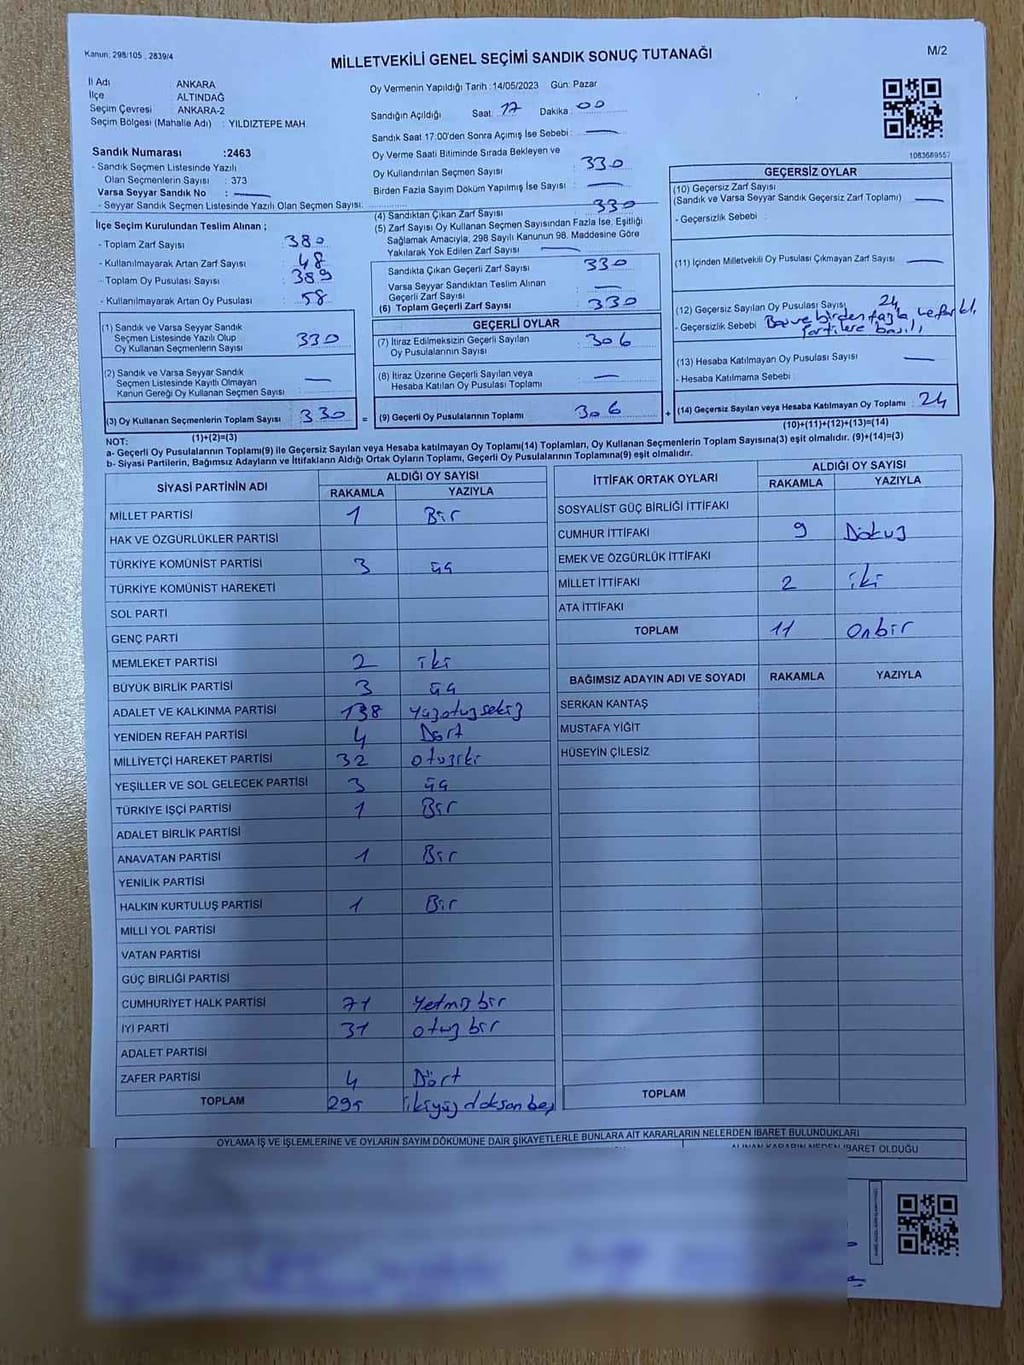 Kanun: 298/105 , 2839/4
MİLLETVEKİLİ GENEL SEÇİMİ SANDIK SONUÇ TUTANAĞI
M/2
İl Adı ANKARA
İlçe ALTINDAĞ
Seçim Çevresi ANKARA-2
Seçim Bölgesi (Mahalle Adı) : YILDIZTEPE MAH
Sandık Numarası :2463
- Sandık Seçmen Listesinde Yazılı
Olan Seçmenlerin Sayısı : 373
Varsa Seyyar Sandık No : —
- Seyyar Sandık Seçmen Listesinde Yazılı Olan Seçmen Sayısı:
Oy Vermenin Yapıldığı Tarih :14/05/2023 Gün: Pazar
Sandığın Açıldığı Saat: 17 Dakika : 00
Sandık Saat 17:00'den Sonra Açımış İse Sebebi : —
Oy Verme Saati Bitiminde Sırada Bekleyen ve
Oy Kullandırılan Seçmen Sayısı : 330
Birden Fazla Sayım Döküm Yapılmış İse Sayısı : —
1083689557
İlçe Seçim Kurulundan Teslim Alınan ;
- Toplam Zarf Sayısı : 380
- Kullanılmayarak Artan Zarf Sayısı : 48
- Toplam Oy Pusulası Sayısı : 389
- Kullanılmayarak Artan Oy Pusulası : 58
(1) Sandık ve Varsa Seyyar Sandık
Seçmen Listesinde Yazılı Olup
Oy Kullanan Seçmenlerin Sayısı : 330
(2) Sandık ve Varsa Seyyar Sandık
Seçmen Listesinde Kayıtlı Olmayan
Kanun Gereği Oy Kullanan Seçmen Sayısı : —
(3) Oy Kullanan Seçmenlerin Toplam Sayısı : 330
(1)+(2)=(3)
(4) Sandıktan Çıkan Zarf Sayısı : 330
(5) Zarf Sayısı Oy Kullanan Seçmen Sayısından Fazla İse, Eşitliği
Sağlamak Amacıyla, 298 Sayılı Kanunun 98. Maddesine Göre
Yakılarak Yok Edilen Zarf Sayısı : —
Sandıkta Çıkan Geçerli Zarf Sayısı : 330
Varsa Seyyar Sandıktan Teslim Alınan
Geçerli Zarf Sayısı : —
(6) Toplam Geçerli Zarf Sayısı : 330
GEÇERLİ OYLAR
(7) İtiraz Edilmeksizin Geçerli Sayılan
Oy Pusulalarının Sayısı : 306
(8) İtiraz Üzerine Geçerli Sayılan veya
Hesaba Katılan Oy Pusulası Toplamı : —
= (9) Geçerli Oy Pusulalarının Toplamı : 306 +
GEÇERSİZ OYLAR
(10) Geçersiz Zarf Sayısı
(Sandık ve Varsa Seyyar Sandık Geçersiz Zarf Toplamı) : —
- Geçersizlik Sebebi :
(11) İçinden Milletvekili Oy Pusulası Çıkmayan Zarf Sayısı : —
(12) Geçersiz Sayılan Oy Pusulası Sayısı : 24
- Geçersizlik Sebebi : Boş ve birden fazla ve farklı
partilere basılı
(13) Hesaba Katılmayan Oy Pusulası Sayısı : —
- Hesaba Katılmama Sebebi :
(14) Geçersiz Sayılan veya Hesaba Katılmayan Oy Toplamı : 24
(10)+(11)+(12)+(13)=(14)
NOT:
a- Geçerli Oy Pusulalarının Toplamı(9) ile Geçersiz Sayılan veya Hesaba katılmayan Oy Toplamı(14) Toplamları, Oy Kullanan Seçmenlerin Toplam Sayısına(3) eşit olmalıdır. (9)+(14)=(3)
b- Siyasi Partilerin, Bağımsız Adayların ve İttifakların Aldığı Ortak Oyların Toplamı, Geçerli Oy Pusulalarının Toplamına(9) eşit olmalıdır.
SİYASİ PARTİNİN ADI ALDIĞI OY SAYISI
RAKAMLA YAZIYLA
MİLLET PARTİSİ 1 Bir
HAK VE ÖZGÜRLÜKLER PARTİSİ
TÜRKİYE KOMÜNİST PARTİSİ 3 üç
TÜRKİYE KOMÜNİST HAREKETİ
SOL PARTİ
GENÇ PARTİ
MEMLEKET PARTİSİ 2 iki
BÜYÜK BİRLİK PARTİSİ 3 üç
ADALET VE KALKINMA PARTİSİ 138 yüzotuzsekiz
YENİDEN REFAH PARTİSİ 4 Dört
MİLLİYETÇİ HAREKET PARTİSİ 32 otuziki
YEŞİLLER VE SOL GELECEK PARTİSİ 3 üç
TÜRKİYE İŞÇİ PARTİSİ 1 Bir
ADALET BİRLİK PARTİSİ
ANAVATAN PARTİSİ 1 Bir
YENİLİK PARTİSİ
HALKIN KURTULUŞ PARTİSİ 1 Bir
MİLLİ YOL PARTİSİ
VATAN PARTİSİ
GÜÇ BİRLİĞİ PARTİSİ
CUMHURİYET HALK PARTİSİ 71 Yetmiş bir
İYİ PARTİ 31 otuz bir
ADALET PARTİSİ
ZAFER PARTİSİ 4 Dört
TOPLAM 295 ikiyüz doksan beş
İTTİFAK ORTAK OYLARI ALDIĞI OY SAYISI
RAKAMLA YAZIYLA
SOSYALİST GÜÇ BİRLİĞİ İTTİFAKI
CUMHUR İTTİFAKI 9 Dokuz
EMEK VE ÖZGÜRLÜK İTTİFAKI
MİLLET İTTİFAKI 2 iki
ATA İTTİFAKI
TOPLAM 11 Onbir
BAĞIMSIZ ADAYIN ADI VE SOYADI RAKAMLA YAZIYLA
SERKAN KANTAŞ
MUSTAFA YİĞİT
HÜSEYİN ÇİLESİZ
TOPLAM
OYLAMA İŞ VE İŞLEMLERİNE VE OYLARIN SAYIM DÖKÜMÜNE DAİR ŞİKAYETLERLE BUNLARA AİT KARARLARIN NELERDEN İBARET BULUNDUKLARI
ALINAN KARARIN NEDEN İBARET OLDUĞU